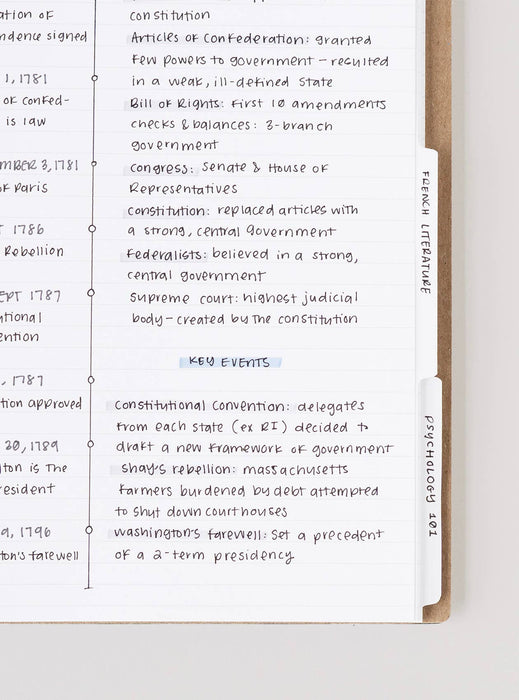 ation of
ndence signed
1, 1781
of confed-
is law
MBER 3, 1781
of Paris
1786
Rebellion
EPT 1787
utional
ention
, 1787
tion approved
20, 1789
ton is the
resident
9, 1796
ton's farewell
constitution
Articles of Confederation: granted
few powers to government - resulted
in a weak, ill-defined state
Bill of Rights: first 10 amendments
checks & balances: 3-branch
government
Congress: Senate & House of
Representatives
Constitution: replaced articles with
a strong, central government
Federalists: believed in a strong,
central government
Supreme court: highest judicial
body - created by the constitution
KEY EVENTS
Constitutional Convention: delegates
from each state (ex RI) decided to
draft a new framework of government
Shay's rebellion: massachusetts
farmers burdened by debt attempted
to shut down courthouses
Washington's farewell: set a precedent
of a 2-term presidency
FRENCH LITERATURE
PSYCHOLOGY 101